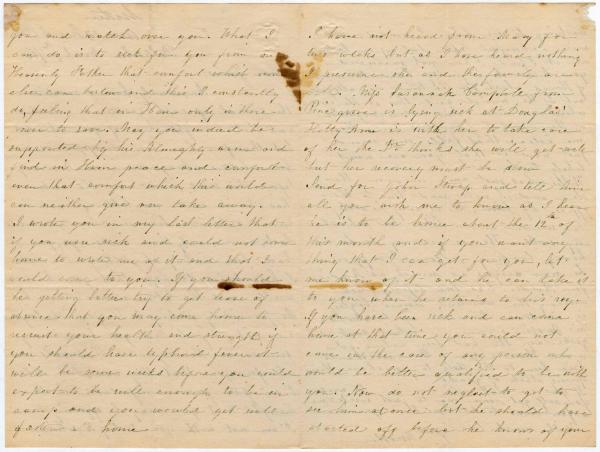 you and watch over you. What I
can do is to ask for you from our
Heavenly Father that comfort which none
else can bestow and this I constantly
do, feeling that in Him only is there
power to save. May you indeed be
supported by his Almighty arm and
find in Him peace and comfort
even that comfort which this world
can neither give nor take away.
I wrote you in my last letter that
if you were sick and could not come
home to write me of it and that I
would come to you. If you should
be getting better try to get leave of
absence that you may come home to
recruit your health and strength, if
you should have typhoid fever it
will be some weeks before you could
expect to be well enough to be in
camp and you would get well
faster at home
I have not heard from Mary for
two weeks but as I have heard nothing
I presume she and the family are
well. Miss Susannah from
Pinegrove is lying sick at Douglas'
Hetty Ann is with her to take care
of her the Dr thinks she will get well
but her recovery must be slow
Send for John Stoop and tell him
all you wish me to know as I hear
he is to be home about the 12th of
this month and if you want any
thing that I can get for you, let
me know of it and he can take it
to you when he returns to his reg.
If you have been sick and can come
home at that time you could not
come in the care of any person who
would be better qualified to be with
you. Now do not neglect to get to
see him at once lest he should have
started off before he knows of your